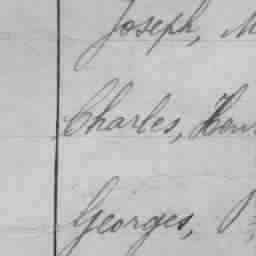 Joseph, M
Charles, Hen
Georges, P